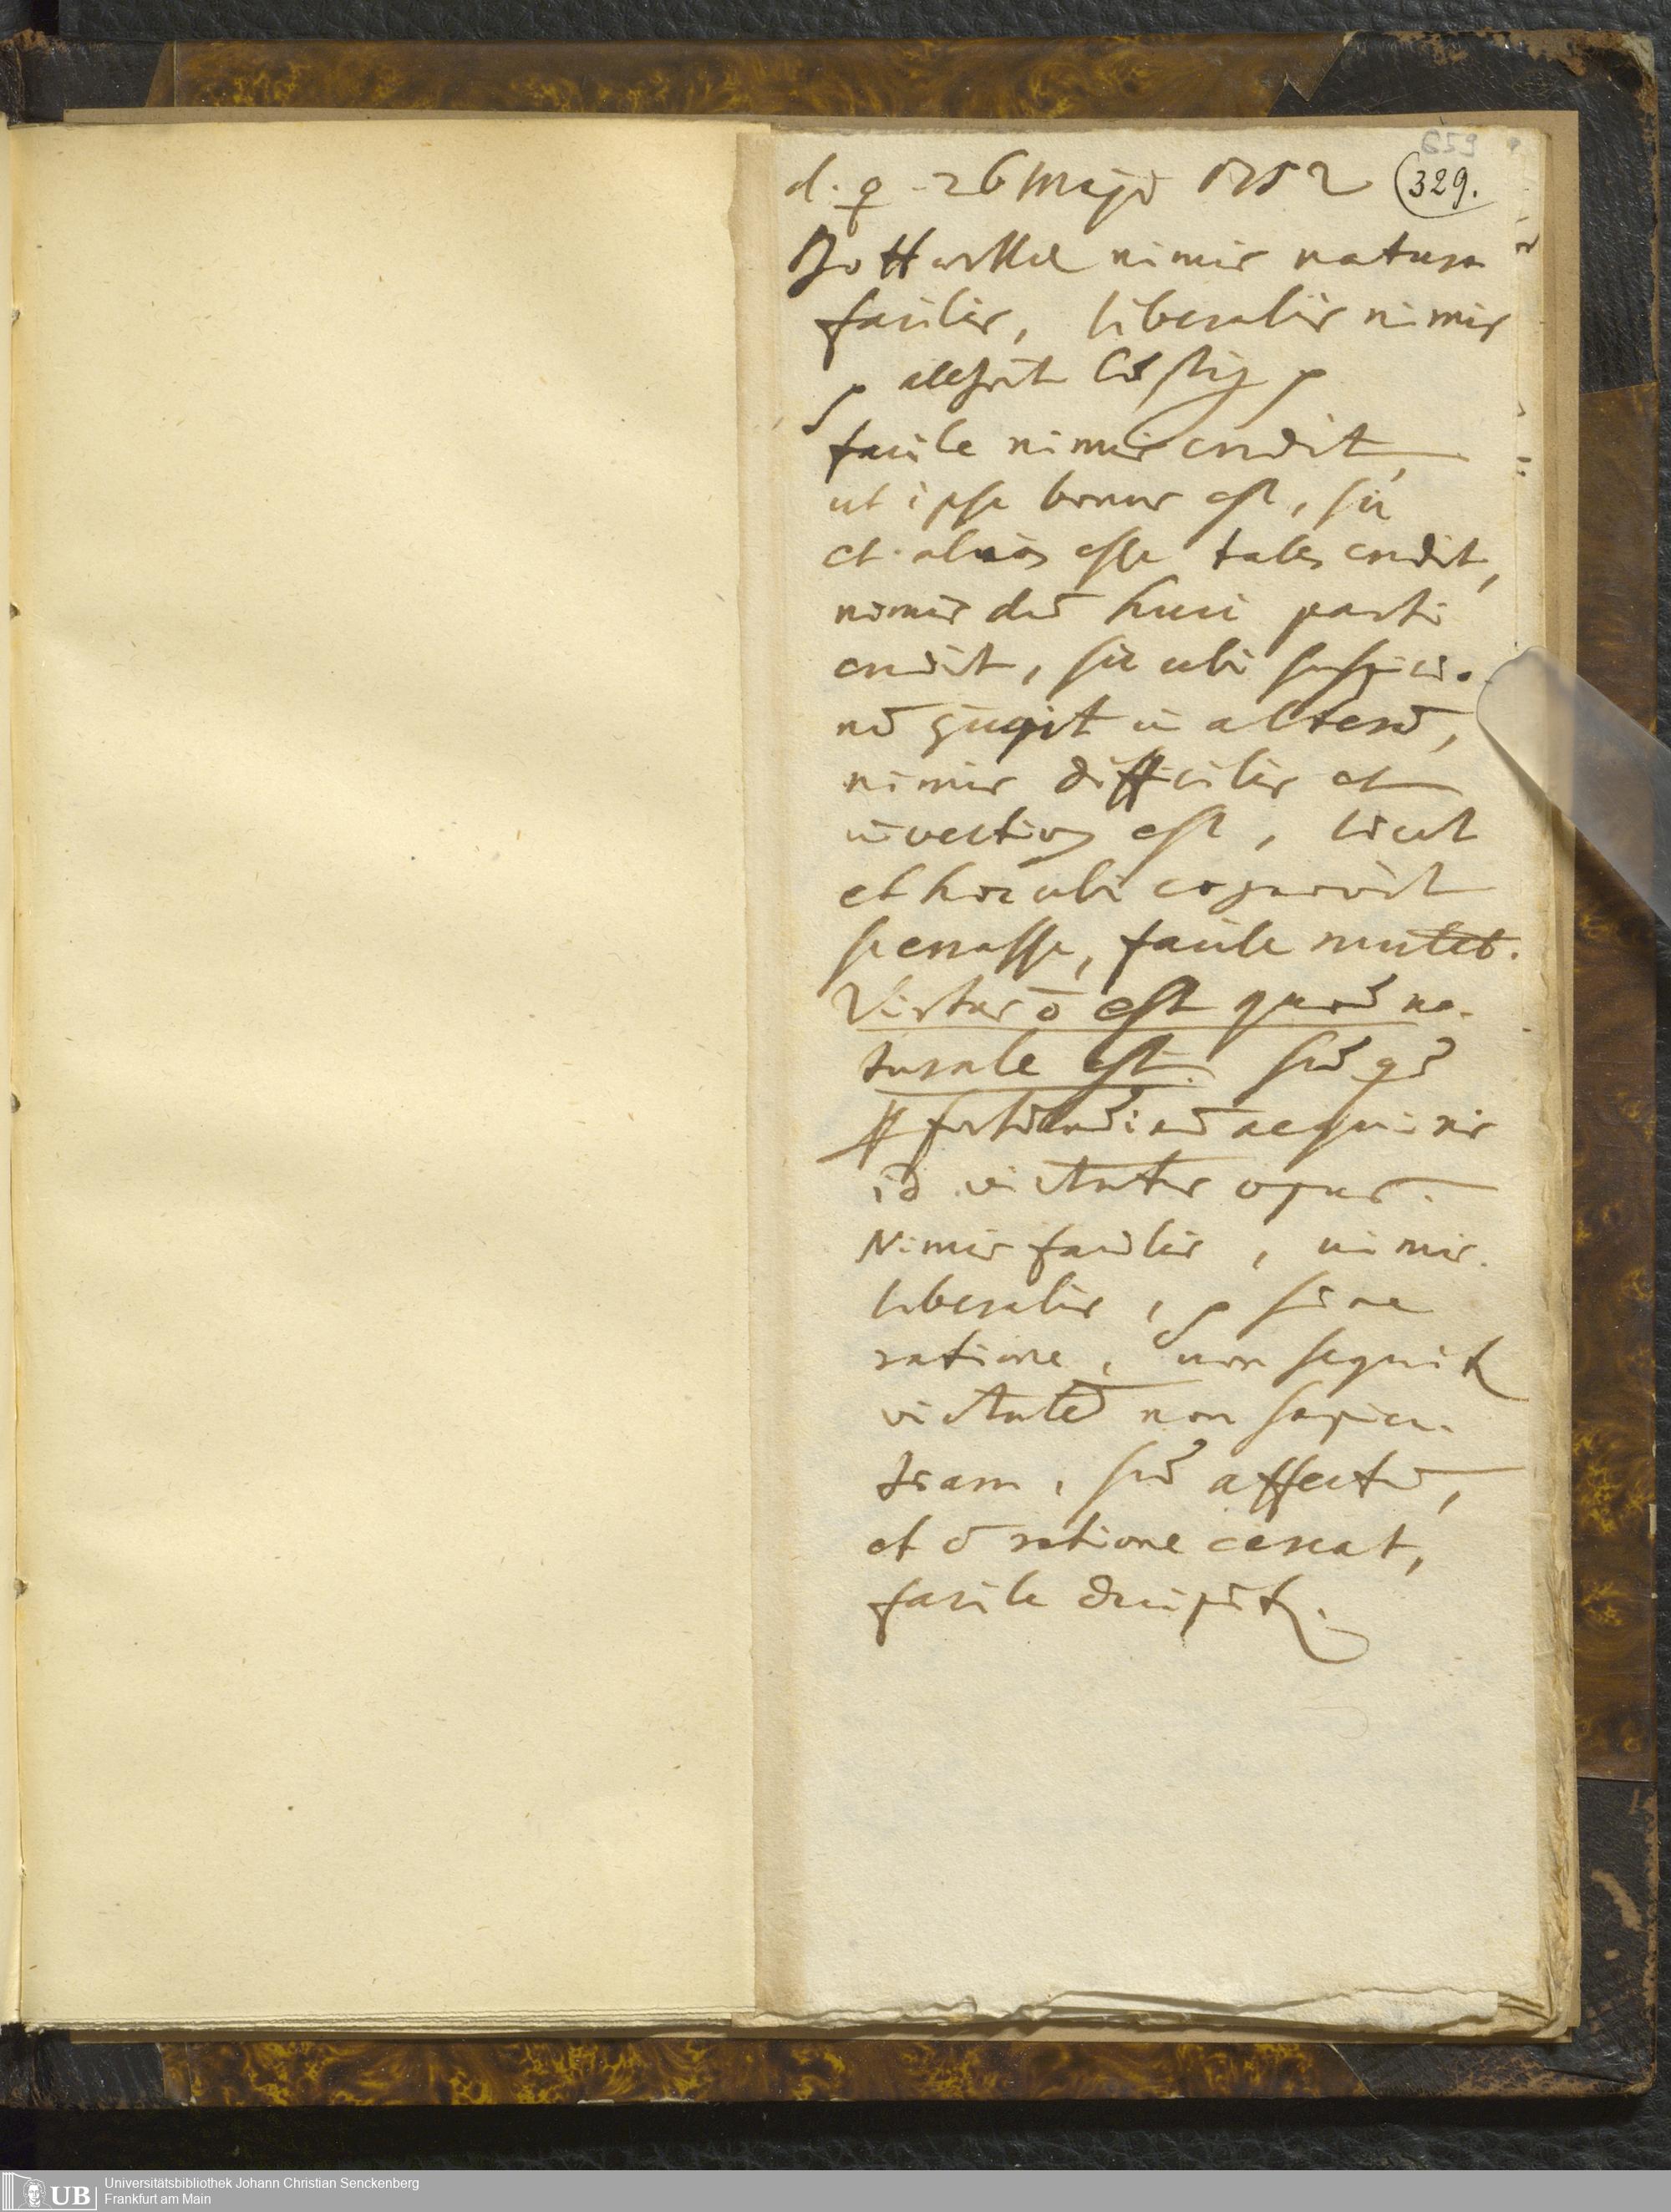 659
d. ♀ 26 Maji 1752 (329.
nimis natura
facilis, liberalis nimis
facile nimis credit,
ut ipse bonus est, sic
et alios esse tales credit,
nimis diu huic parti
credit, sic ubi suspicio-
nē in alterū,
nimis difficilis et
īvectivus est, licet
et hoc ubi cognovit
se errasse, facile mutet.
Virtus ō est quod na-
turale est. sed qd
id virtutis opus.
Nimis facilis, nimis
liberalis, sine
ratione, non sequit
virtutē non sapien-
tiam, sed affectū,
et ō ratione careat,
facile decipit.
UB Universitätsbibliothek Johann Christian Senckenberg
Frankfurt am Main